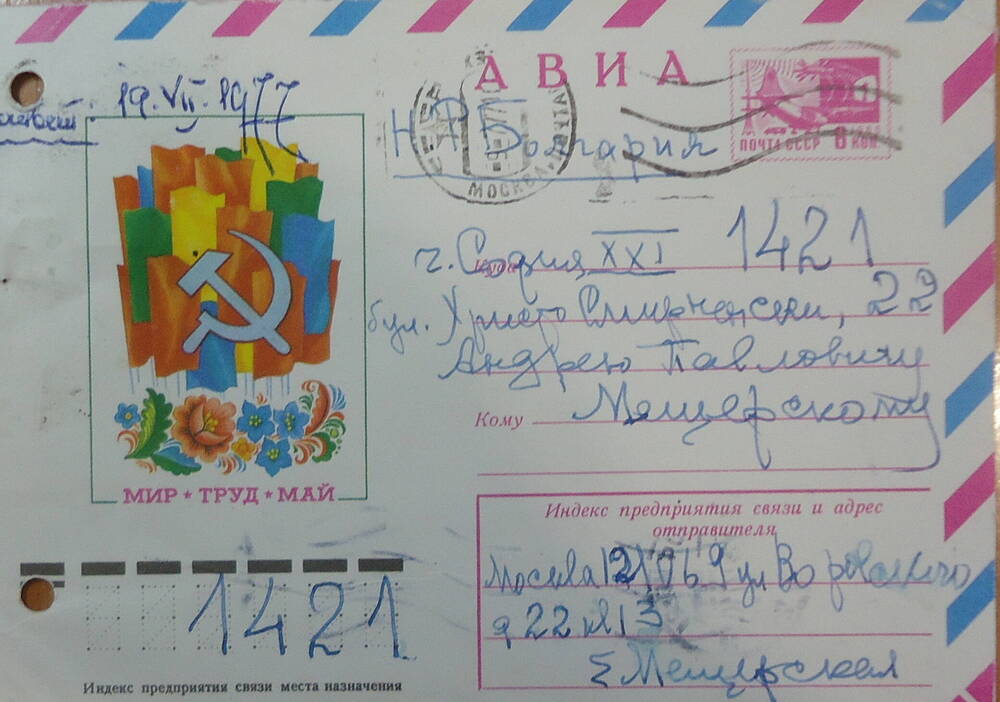 АВИА
19.VII.1977
МОСКВА
ПОЧТА СССР 6 КОП
НР Болгария
г. София XXI 1421
Куда
бул. Христо Смирненски, 22
Андрею Павловичу
Кому Мещерскому
МИР ★ ТРУД ★ МАЙ
Индекс предприятия связи и адрес
отправителя
Москва 121069 ул Воровского
д 22 кв 13
Е Мещерская
1421
Индекс предприятия связи места назначения